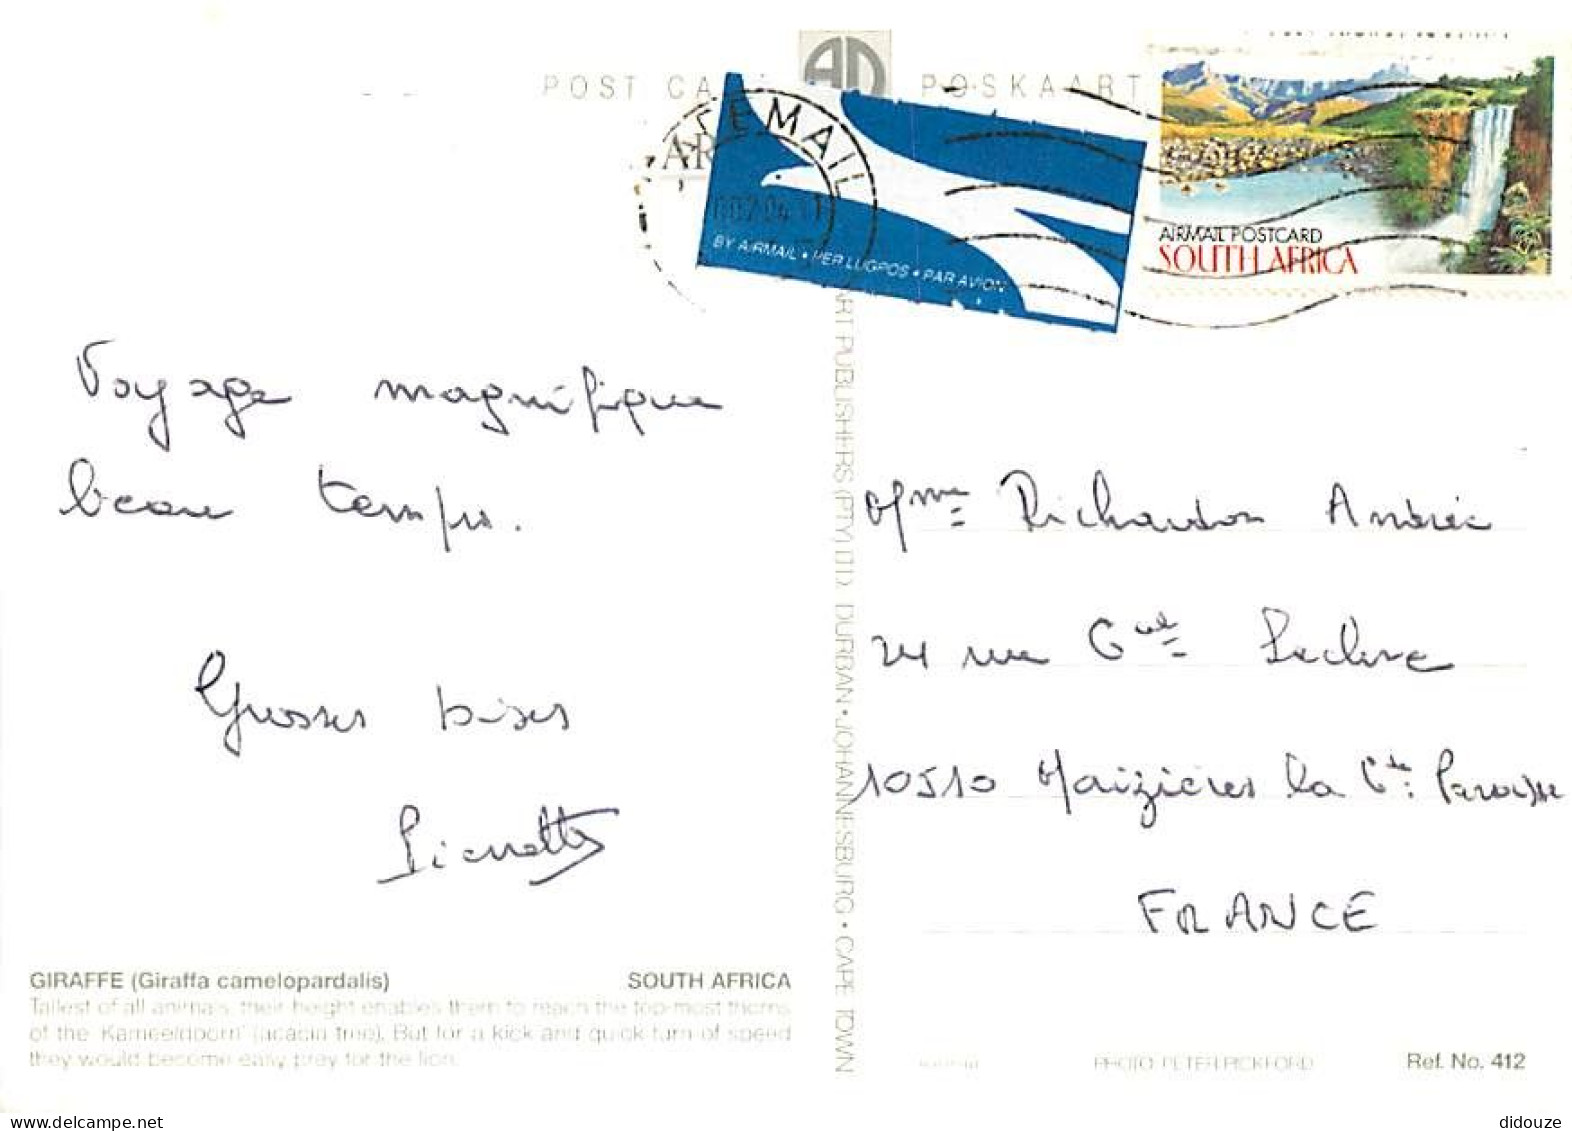 POST CA
POSKAART
AIRMAIL POSTCARD
SOUTH AFRICA
BY AIRMAIL • PER LUGPOS • PAR AVION
Voyage magnifique
beau temps.
Grosses bises
Pierrette
Mme Richardon Andrée
24 rue Gal Leclerc
10510 Maizières la Gde Paroisse
FRANCE
ART PUBLISHERS (PTY) LTD. DURBAN • JOHANNESBURG • CAPE TOWN
GIRAFFE (Giraffa camelopardalis) SOUTH AFRICA
Tallest of all animals, their height enables them to reach the top-most thorns
of the 'Kameeldoorn' (acacia tree). But for a kick and quick turn of speed
they would become easy prey for the lion.
PHOTO: PETER PICKFORD
Ref. No. 412
didouze